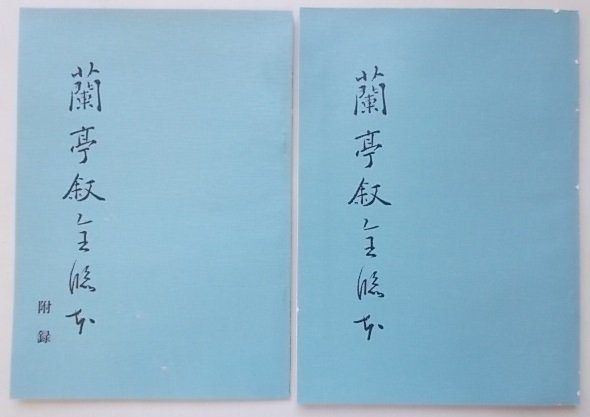 蘭亭叙全臨本
附録
蘭亭叙全臨本